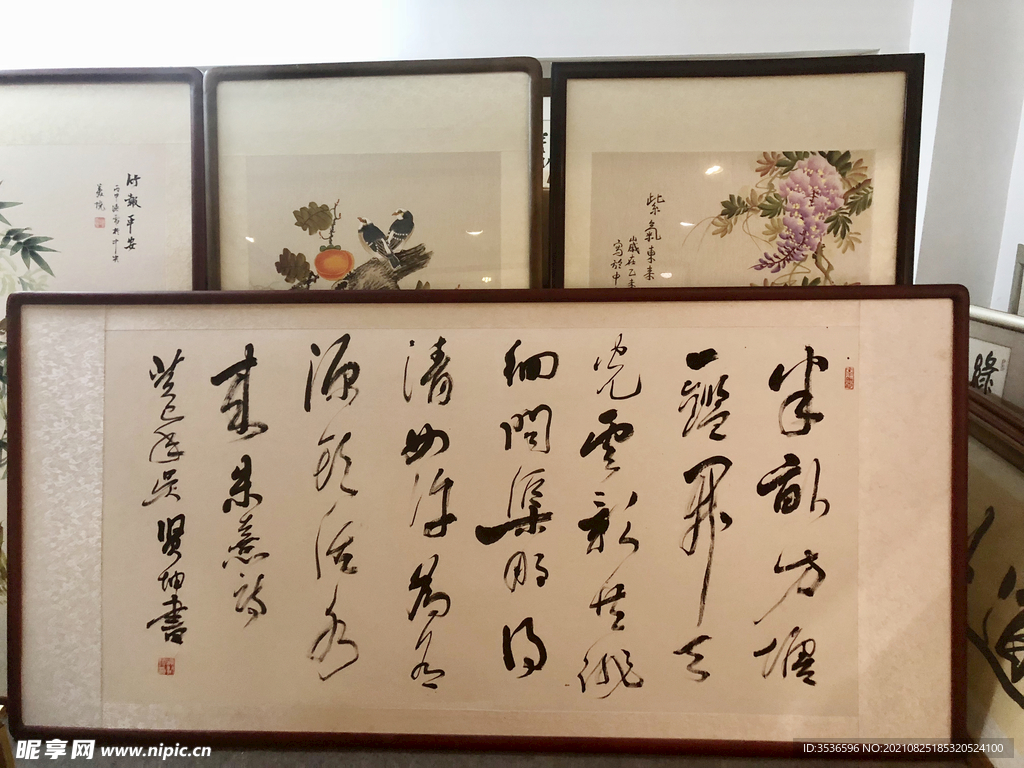 半畝方塘
一鑑開天
光雲影共徘
徊問渠那得
清如許為有
源頭活水
來朱熹詩
賢坤書
竹報平安
紫氣東來
歲在乙未
寫於中
綠
昵享网 www.nipic.cn
ID:3536596 NO:20210825185320524100